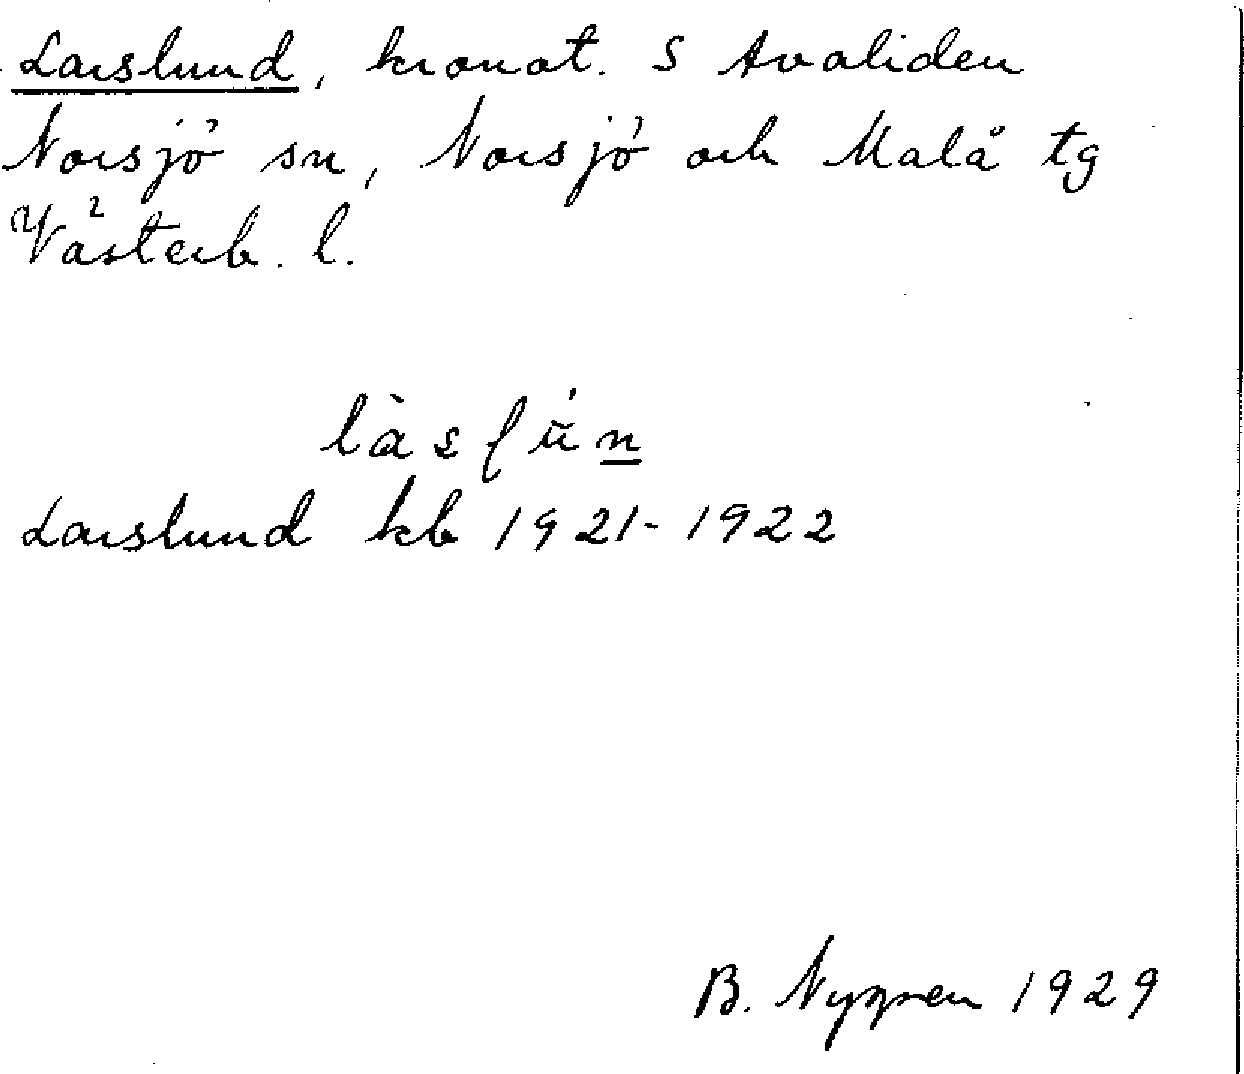 Larslund, kronot. S Avaliden
Norsjö sn, Norsjö och Malå tg
Västerb. l.
Larslund kb 1921-1922
B. Nygren 1929